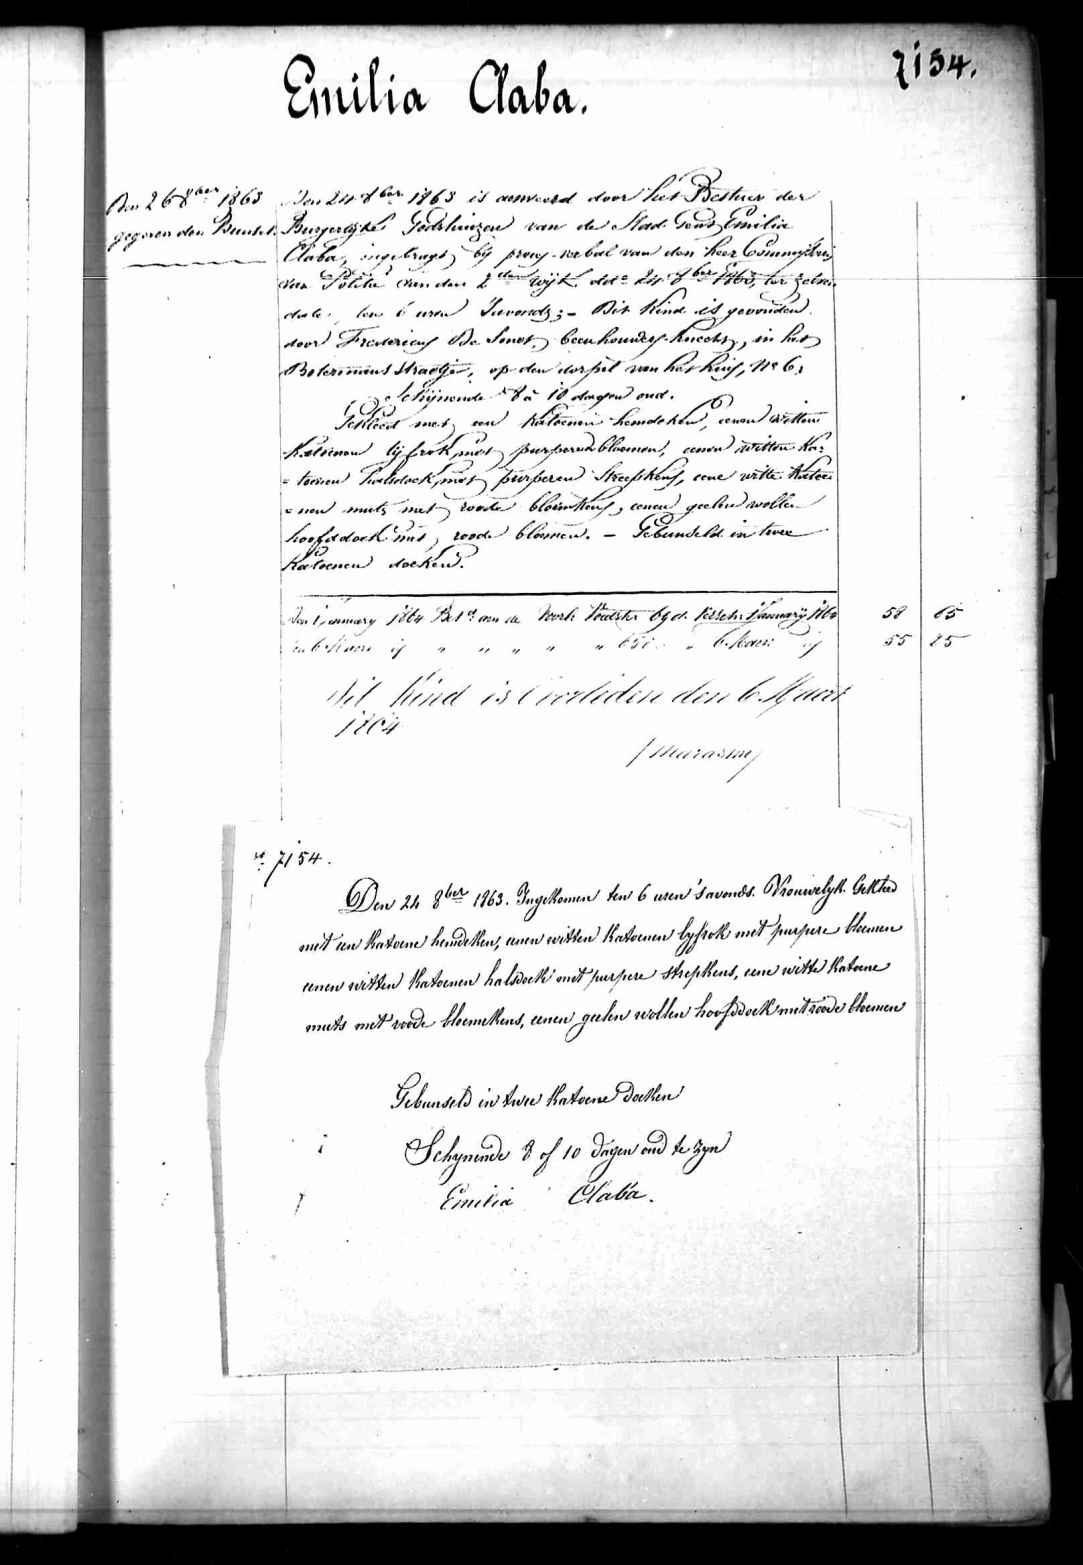 7154.
Emilia Claba.
Den 26 8ber 1863
gegeven den
Den 24 8ber 1863 is aenveerd door het Bestuer der
Burgerlyke Godshuizen van de Stad Gend, Emilia
Claba, ingebragt by proces-verbal van den heer Commissaris
van Politie van den 2den wyk, ddo 24 8ber 1863, ter zelver
date, ten 6 uren 's avonds; - Dit Kind is gevonden
door Fredericus De Smet, beenhouwers-knecht, in het
straetje, op den dorpel van het huis, No 6,
Schynende 8 à 10 dagen oud.
Gekleed met een Katoenen hemdeken, eenen witten
Katoenen lyfrok met purperen bloemen, eenen witten Ka=
=toenen halsdoek, met purperen Streepkens, eene witte Katoe=
=nen muts met roode bloemkens, eenen geelen wollen
hoofddoek met roode bloemen. - Gebunseld in twee
Katoenen doeken.
Den 1 January 1864 Bet. aen de Voedster 1 January 1864 58 65
6 Maert id " " " " " 6 Maert id 55 25
Dit Kind is Overleden den 6 Maert
1864
No 7154.
Den 24 8ber 1863. Ingekomen ten 6 uren 's avonds. Vrouwelyk. Gekleed
met een Katoene hemdeken, eenen witten Katoenen lyfrok met purpere bloemen
eenen witten Katoenen halsdoek met purpere strepkens, eene witte Katoene
muts met roode bloemekens, eenen geelen wollen hoofddoek met roode bloemen
Gebunseld in twee Katoene Doeken
Schynende 8 of 10 dagen oud te zyn
Emilia Claba.